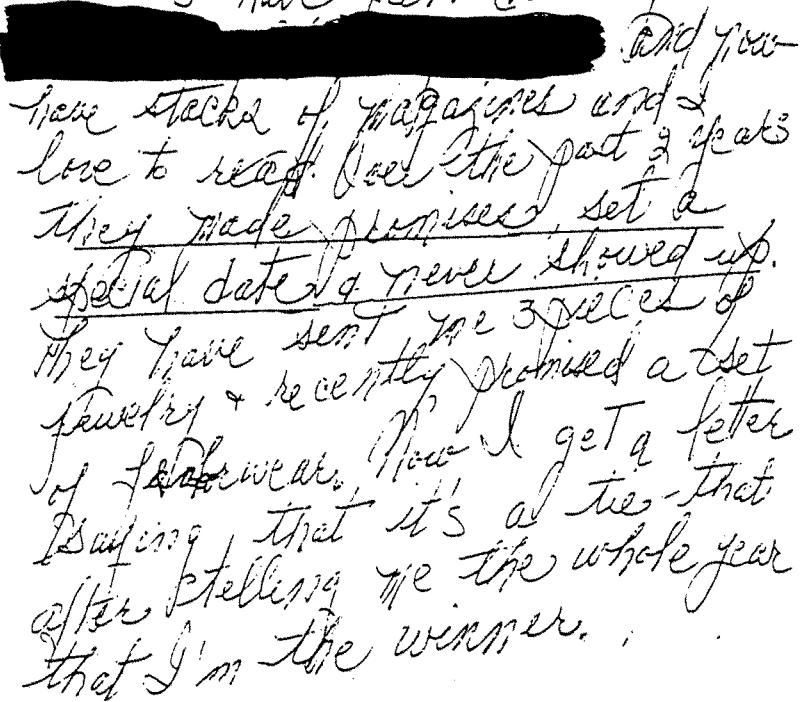 have been
and now
have stacks of magazines and I
love to read. Over the past 2 years
they made promises, set a
special date & never showed up.
They have sent me 3 pieces of
jewelry & recently promised a set
of wear. Now I get a letter
saying that it's a tie - that
after telling me the whole year
that I'm the winner.